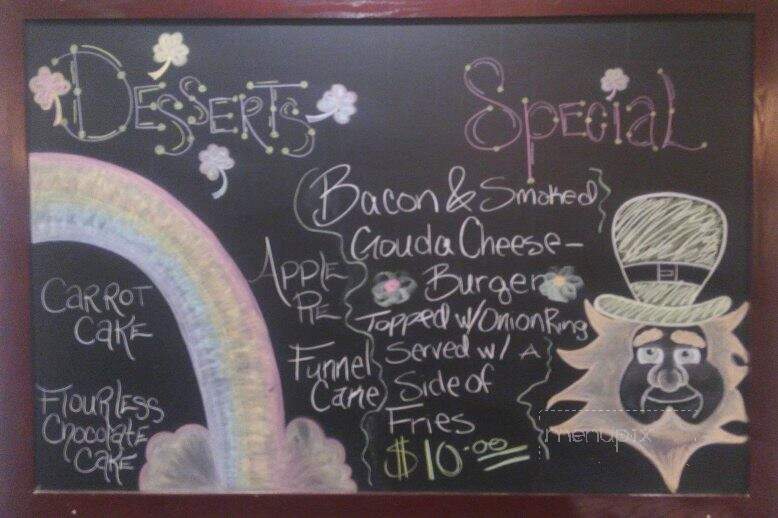 Desserts
Carrot
Cake
Flourless
Chocolate
Cake
Apple
Pie
Funnel
Cake
Special
Bacon & Smoked
Gouda Cheese-
Burger
Topped w/ Onion Ring
Served w/ A
Side of
Fries
$10.00
menupix